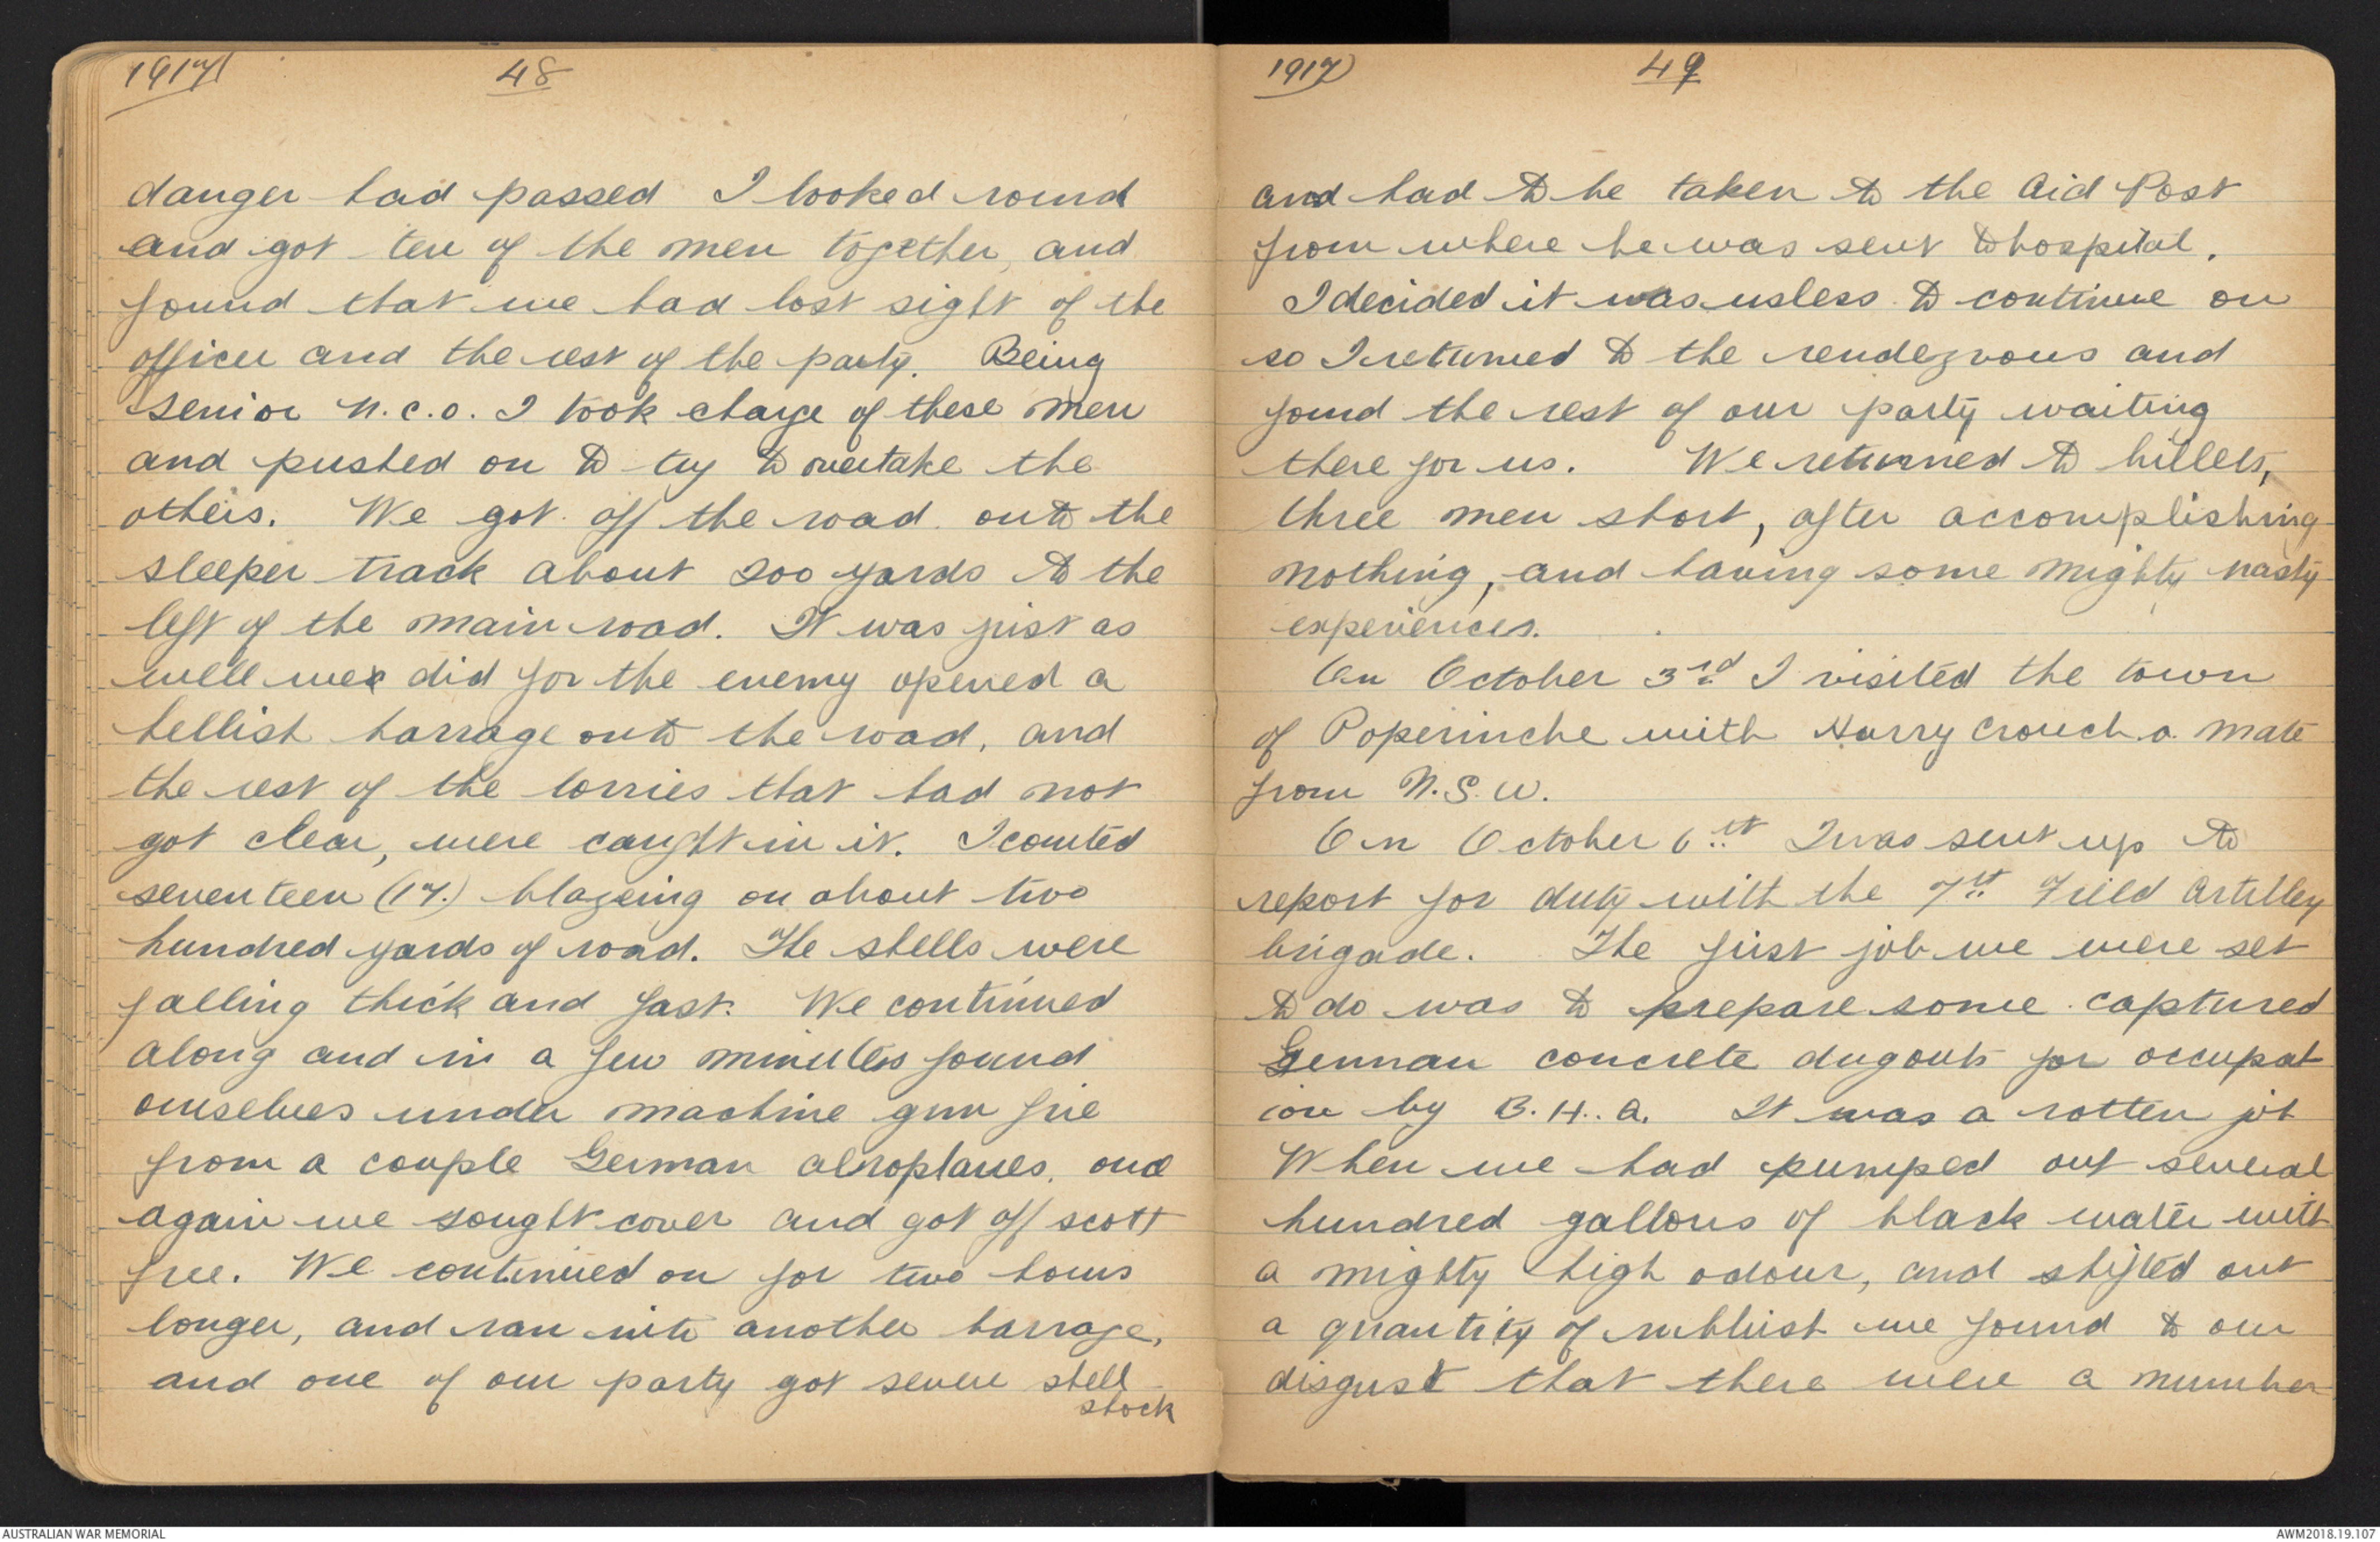 1917
48
danger had passed I looked round
and got ten of the men together, and
found that we had lost sight of the
officer and the rest of the party. Being
senior N.C.O. I took charge of these men
and pushed on to try to overtake the
others. We got off the road onto the
sleeper track about 200 yards to the
left of the main road. It was just as
well we did for the enemy opened a
hellish barrage onto the road, and
the rest of the lorries that had not
got clear, were caught in it. I counted
seventeen (17.) blazeing on about two
hundred yards of road. The shells were
falling thick and fast. We continued
along and in a few minutes found
ourselves under machine gun fire
from a couple German aeroplanes, and
again we sought cover and got off scott
free. We continued on for two hours
longer, and ran into another barrage,
and one of our party got severe shell
shock
1917
49
and had to be taken to the Aid Post
from where he was sent to hospital.
I decided it was usless to continue on
so I returned to the rendezvous and
found the rest of our party waiting
there for us. We returned to billets,
three men short, after accomplishing
nothing, and having some mighty nasty
experiences.
On October 3rd I visited the town
of Poperinche with Harry Crouch a mate
from N.S.W.
On October 6th I was sent up to
report for duty with the 7th Field Artilley
brigade. The first job we were set
to do was to prepare some captured
German concrete dugouts for occupat
ion by B.H.Q. It was a rotten job
When we had pumped out several
hundred gallons of black water with
a mighty high odour, and shifted out
a quantity of rubbish we found to our
disgust that there were a number
AUSTRALIAN WAR MEMORIAL
AWM2018.19.107